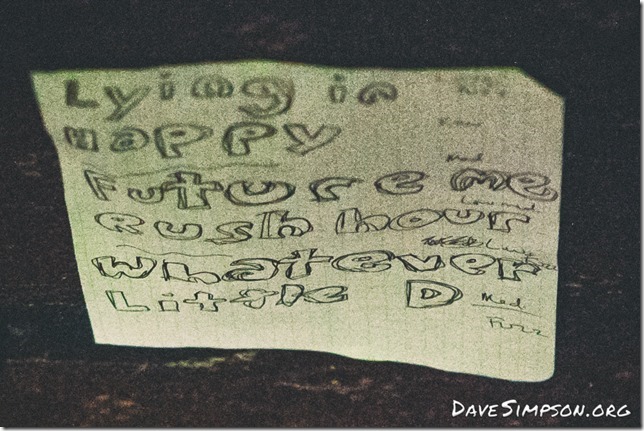 Lying in
Happy
Future me
Rush hour
Whatever
Little D
Med
Fuzz
DaveSimpson.org